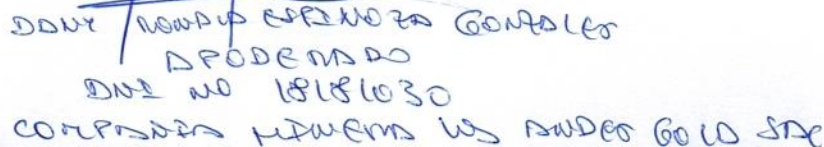 DANY TROWDIP ESPINOZA GONZALES
APODERADO
DNI NO 18181030
COMPAÑIA MINERA LOS ANDES GOLD SAC